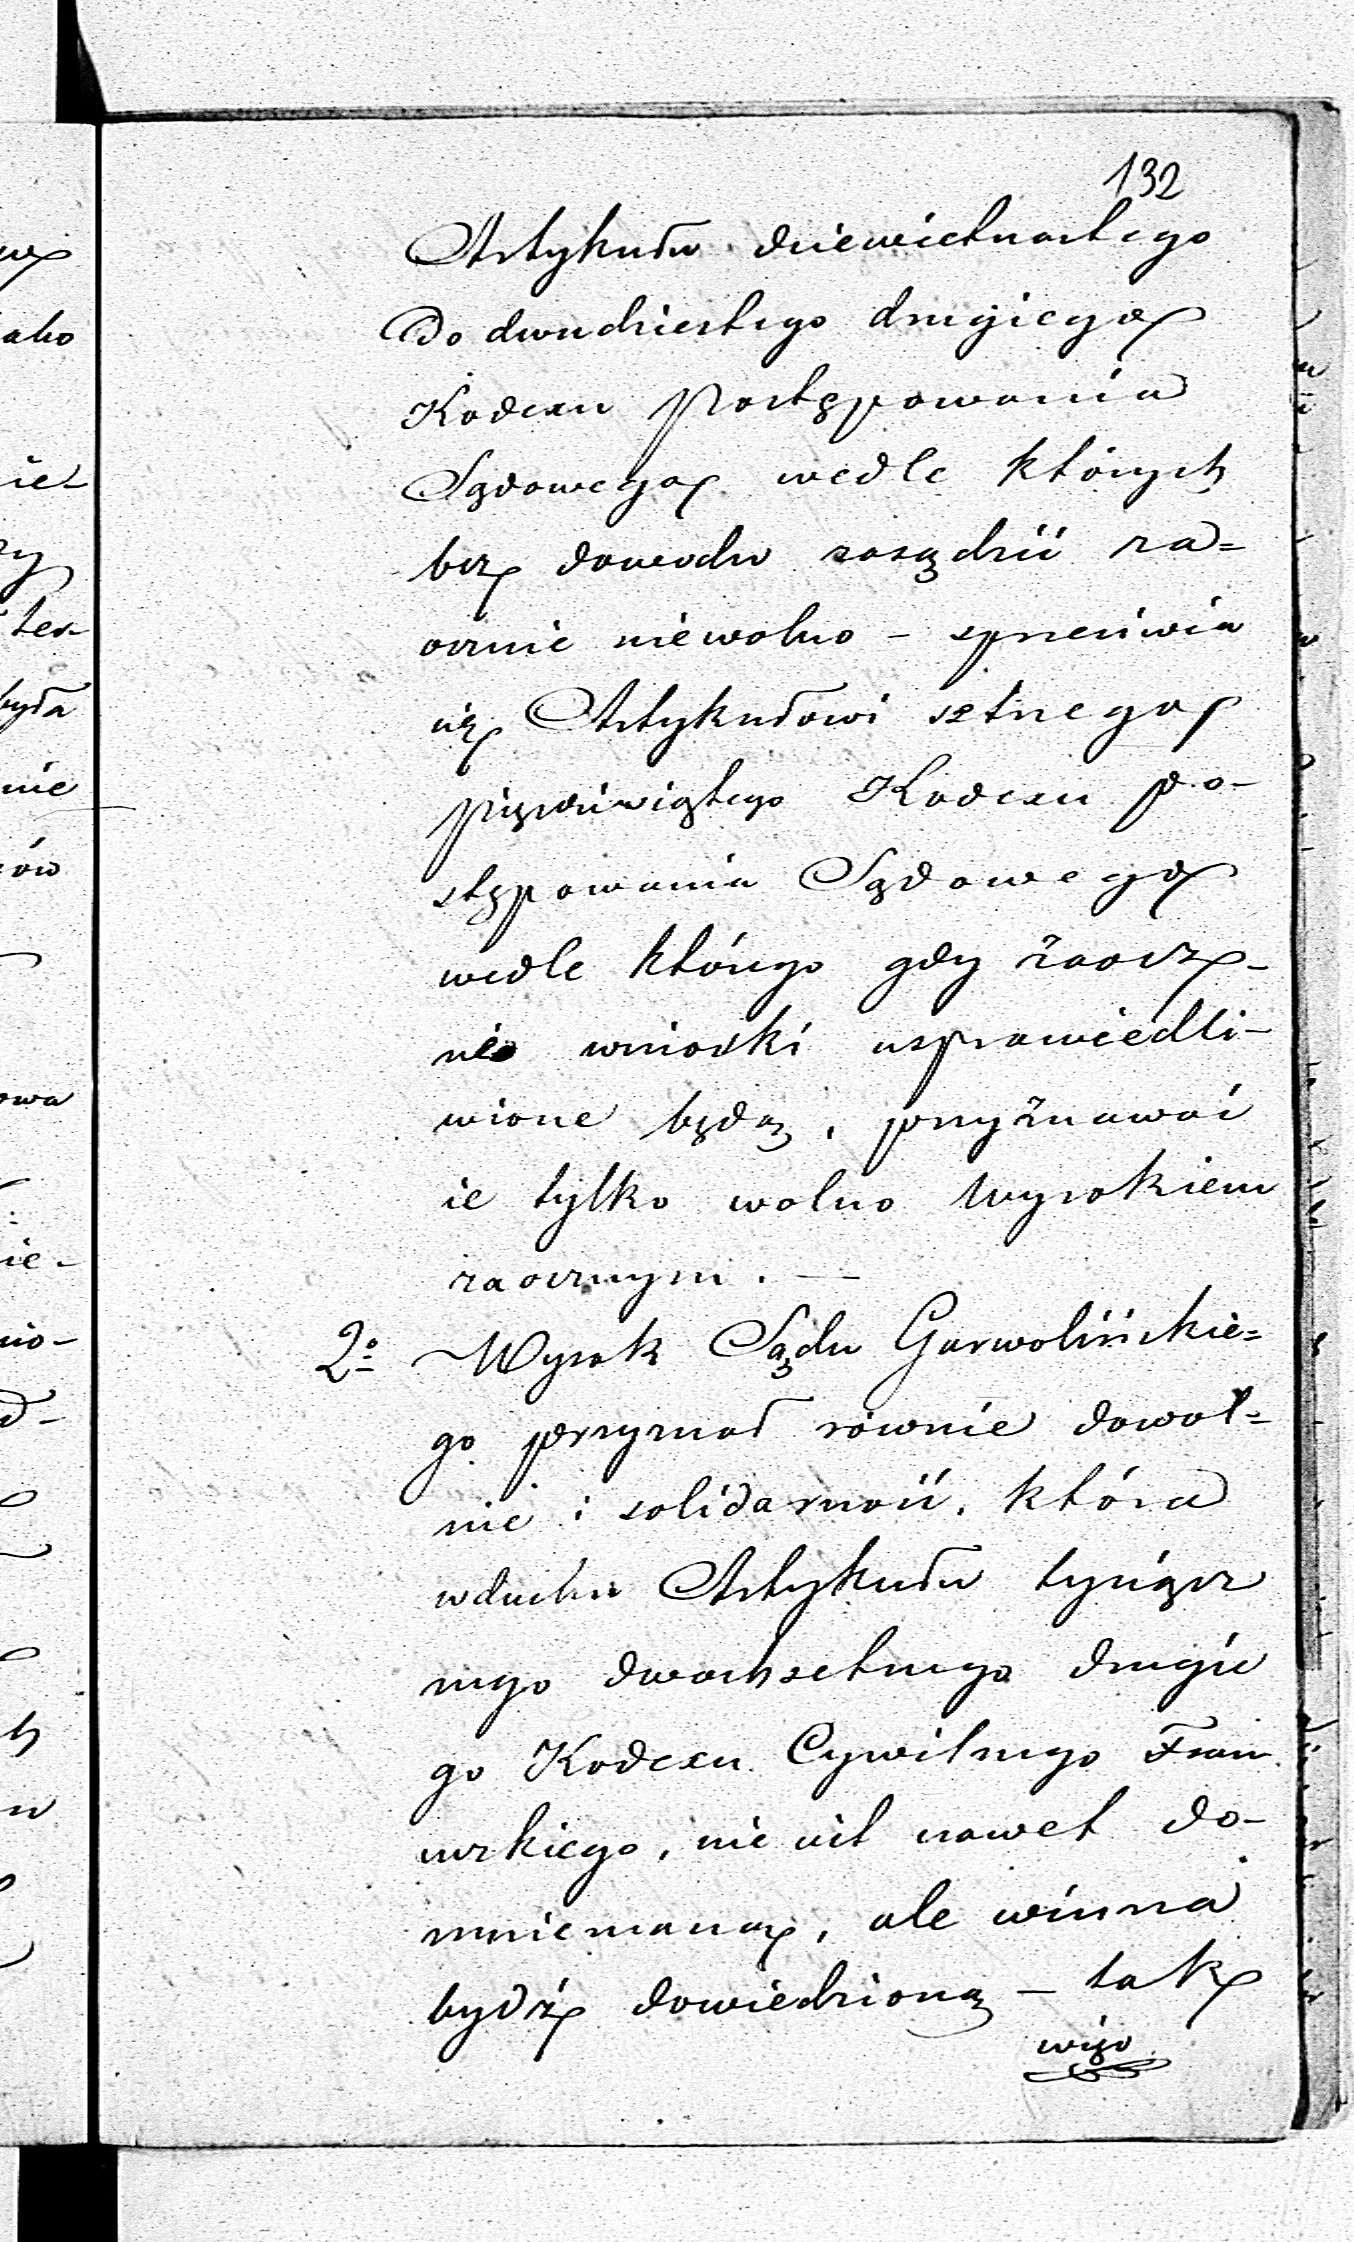 132
Artykułu dziewiętnastego
Do dwudziestego drugiego
Kodexu Postępowania
Sądowego wedle których
bez dowodu zasądzić za=
ocznie niewolno – sprzeciwia
się Artykułowi setnego
pięćdziesiątego Kodexu po-
stępowania Sądowego
wedle którego gdy zaocz-
nie wnioski usprawiedli-
wione będą, przyznawać
ie tylko wolno Wyrokiem
zaocznym. —
2o Wyrok Sądu Garwolińskie=
go przyznał równie dowol=
nie i solidarność, która
w duchu Artykułu tysiącz
nego dwochsetnego drugie
go Kodexu Cywilnego Fran
cuzkiego, nie iest nawet do-
mniemaną, ale winna
bydź dowiedzioną – tak
więc